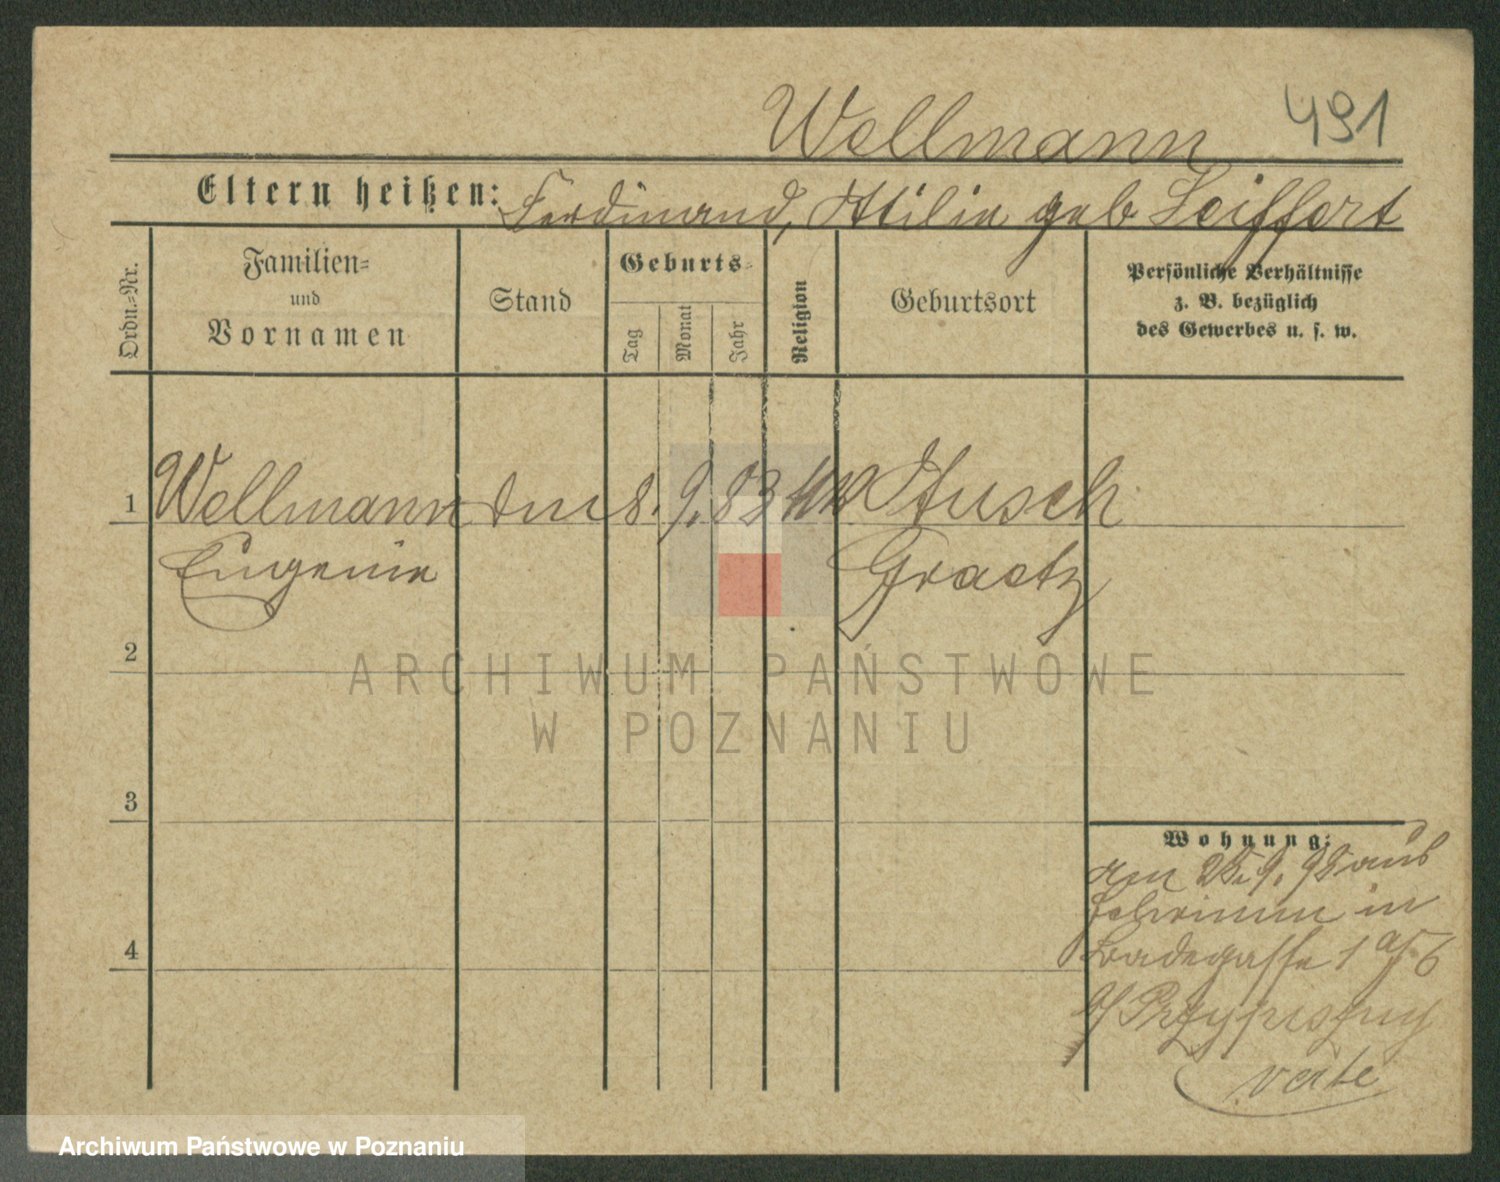 Wellmann 491
Eltern heißen: Ferdinand, Ottilie geb Seiffert
Ordn.-Nr.
Familien-
und
Vornamen
Stand
Geburts-
Tag
Monat
Jahr
Religion
Geburtsort
Persönliche Verhältnisse
z. B. bezüglich
des Gewerbes u. s. w.
1 Wellmann 8. 9. 83
Eugenie Graetz
2
ARCHIWUM PAŃSTWOWE
W POZNANIU
3
4
Wohnung:
am 25. 9. 98 aus
in
Badegasse 1 a/6
b/
verte
Archiwum Państwowe w Poznaniu